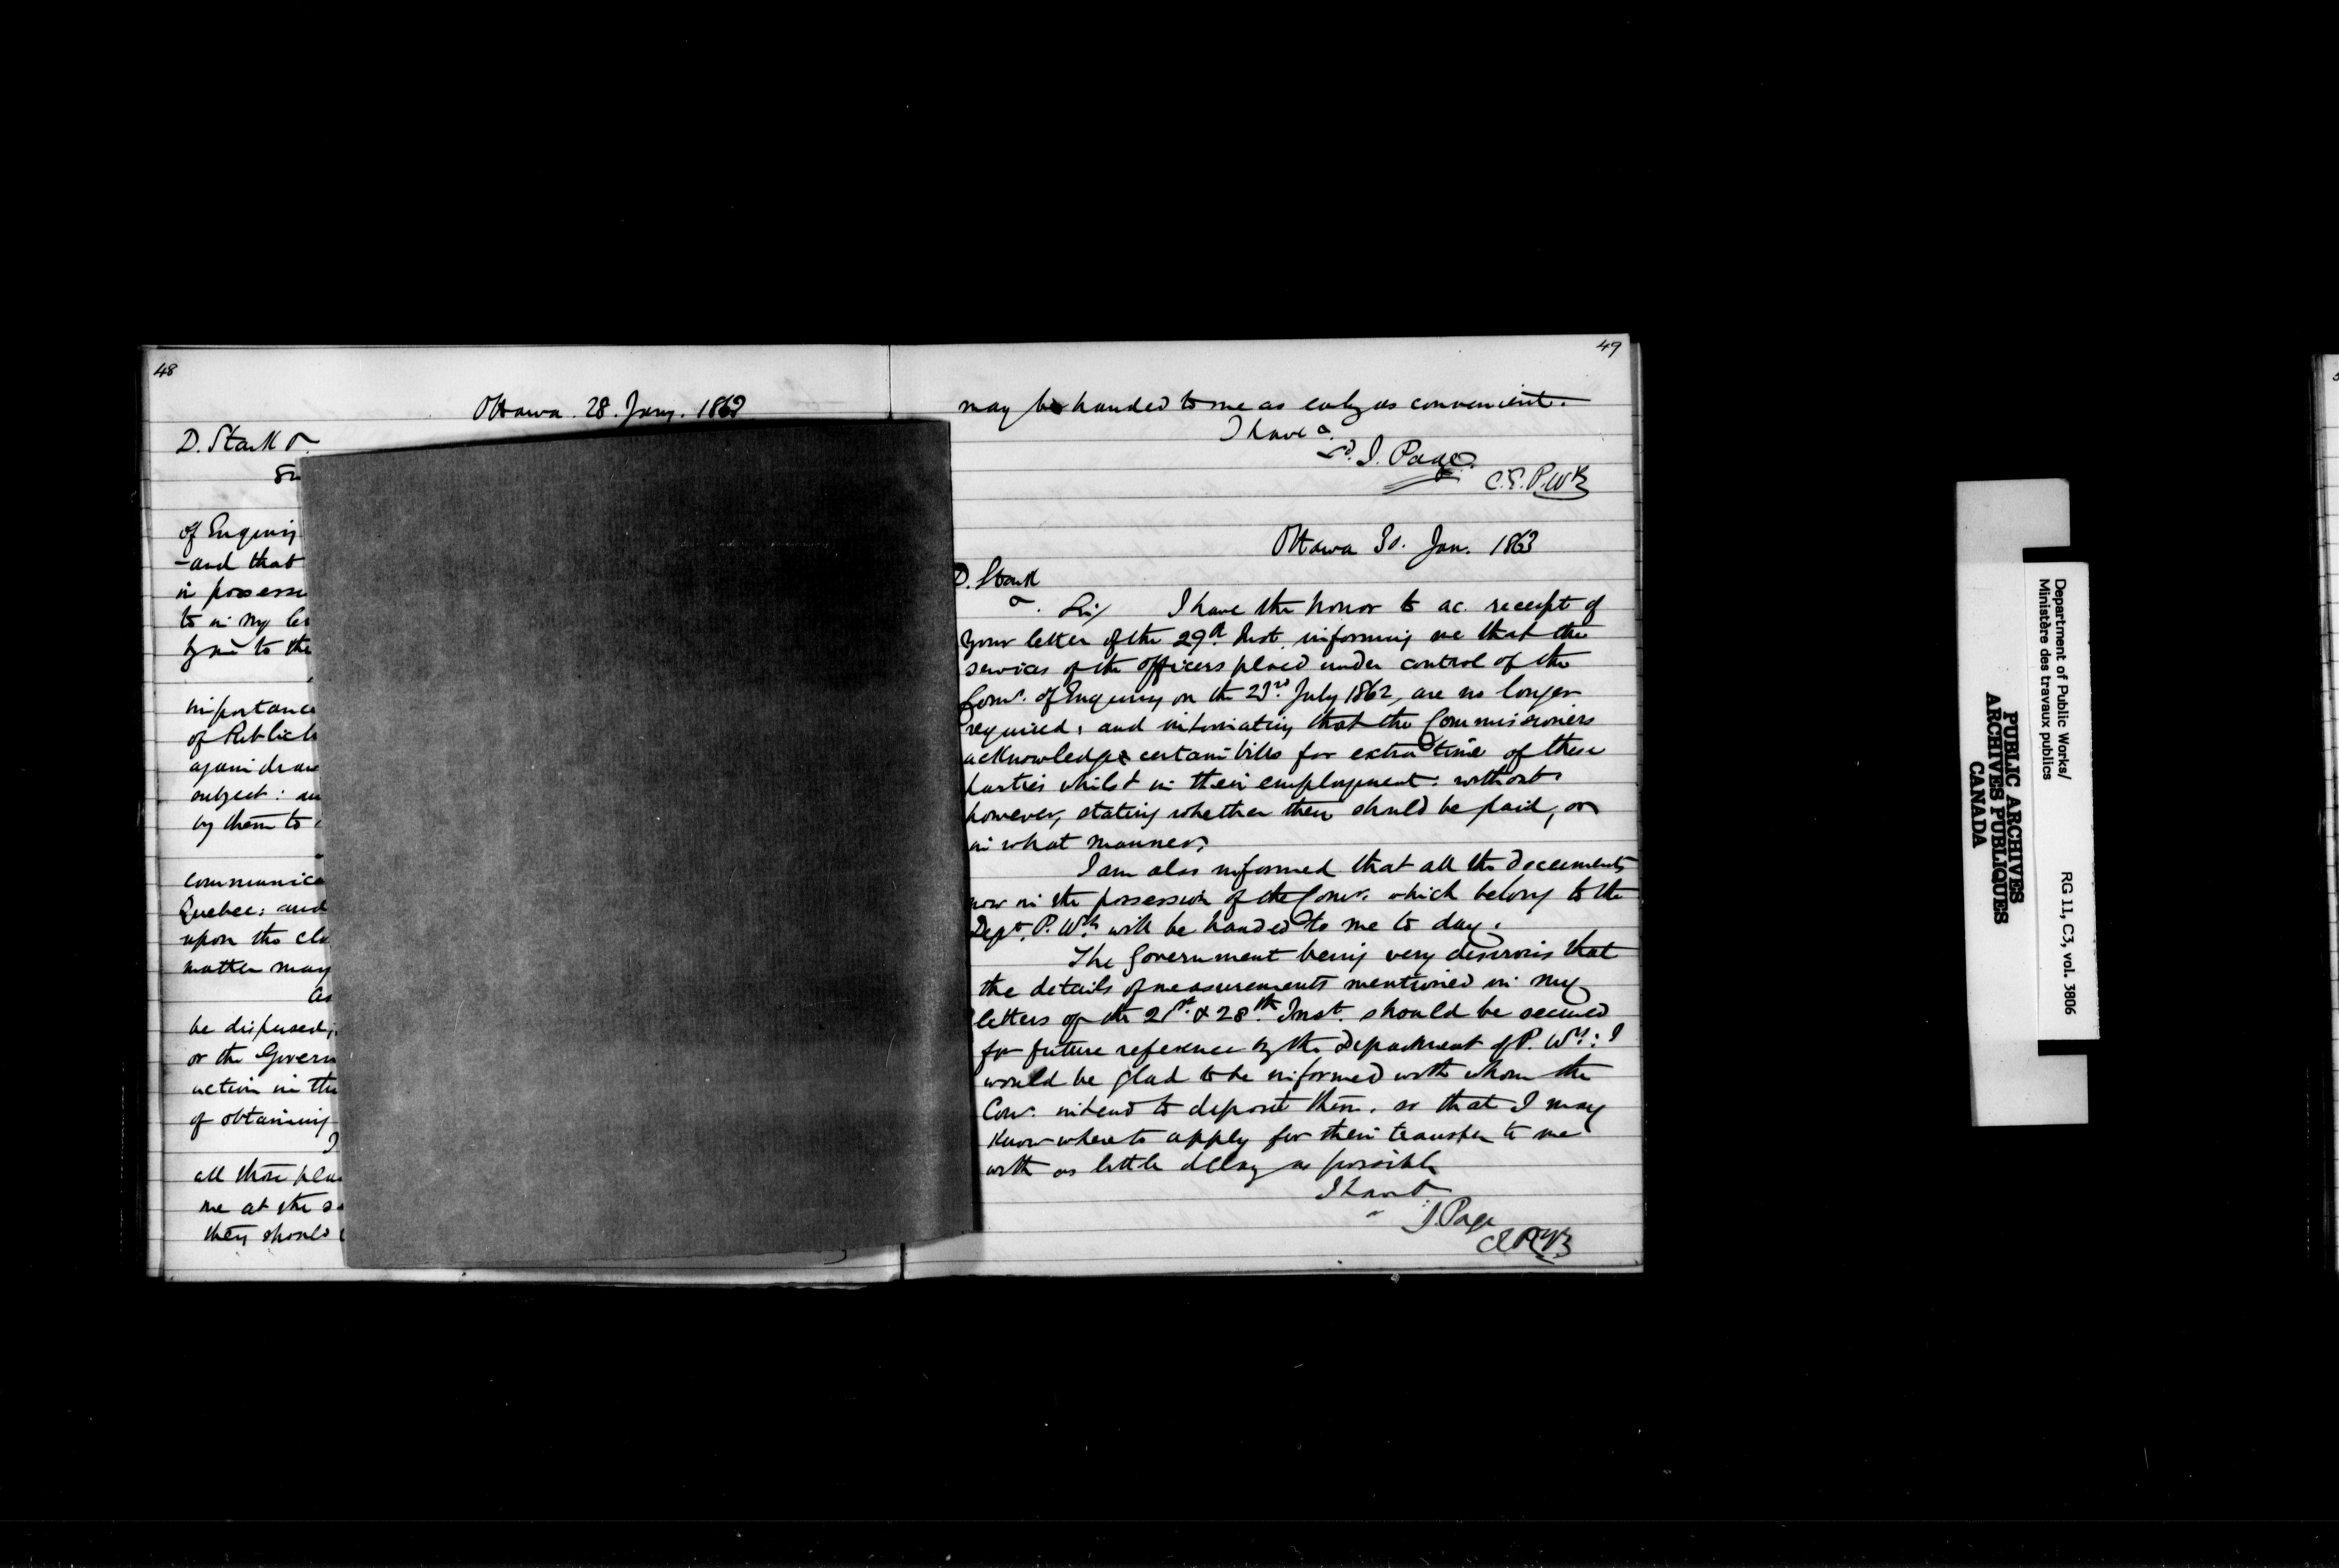 48
Ottawa. 28. Jany. 1863
D. Stark
of Enquiry
-and that
in
to in my
to the
importance
of
again
subject:
by them to
Quebec: and
upon the
matter may
As
be
or the
action in the
of obtaining
I
all those
me at the
they should
49
may be handed to me as early as convenient.
I have &.
sd. J. Page.
C.E.P.Wks
Ottawa 30. Jan. 1863
D. Stark
&. Sir/ I have the honor to ac. receipt of
your letter of the 29th. Inst. informing me that the
services of the officers placed under control of the
Comn. of Enquiry on the 23rd July 1862, are no longer
required, and intimating that the Commissioners
acknowledge certain bills for extra time of these
parties whilst in their employment: without
however, stating whether these should be paid, or
in what manner.
I am also informed that all the documents
now in the possession of the Comn. which belong to the
Dept. P. Wks will be handed to me to day.
The Government being very desirous that
the details of measurements mentioned in my
letters of the 21st. & 28th Inst. should be secured
for future reference by the Department of P. Wks: I
would be glad to be informed with whom the
Comn. intend to deposit them. so that I may
know where to apply for their transfer to me
with as little delay as possible
I have &
J Page
C.E.P.Wks
Department of Public Works/
Ministère des travaux publics
RG 11, C3, vol. 3806
PUBLIC ARCHIVES
ARCHIVES PUBLIQUES
CANADA